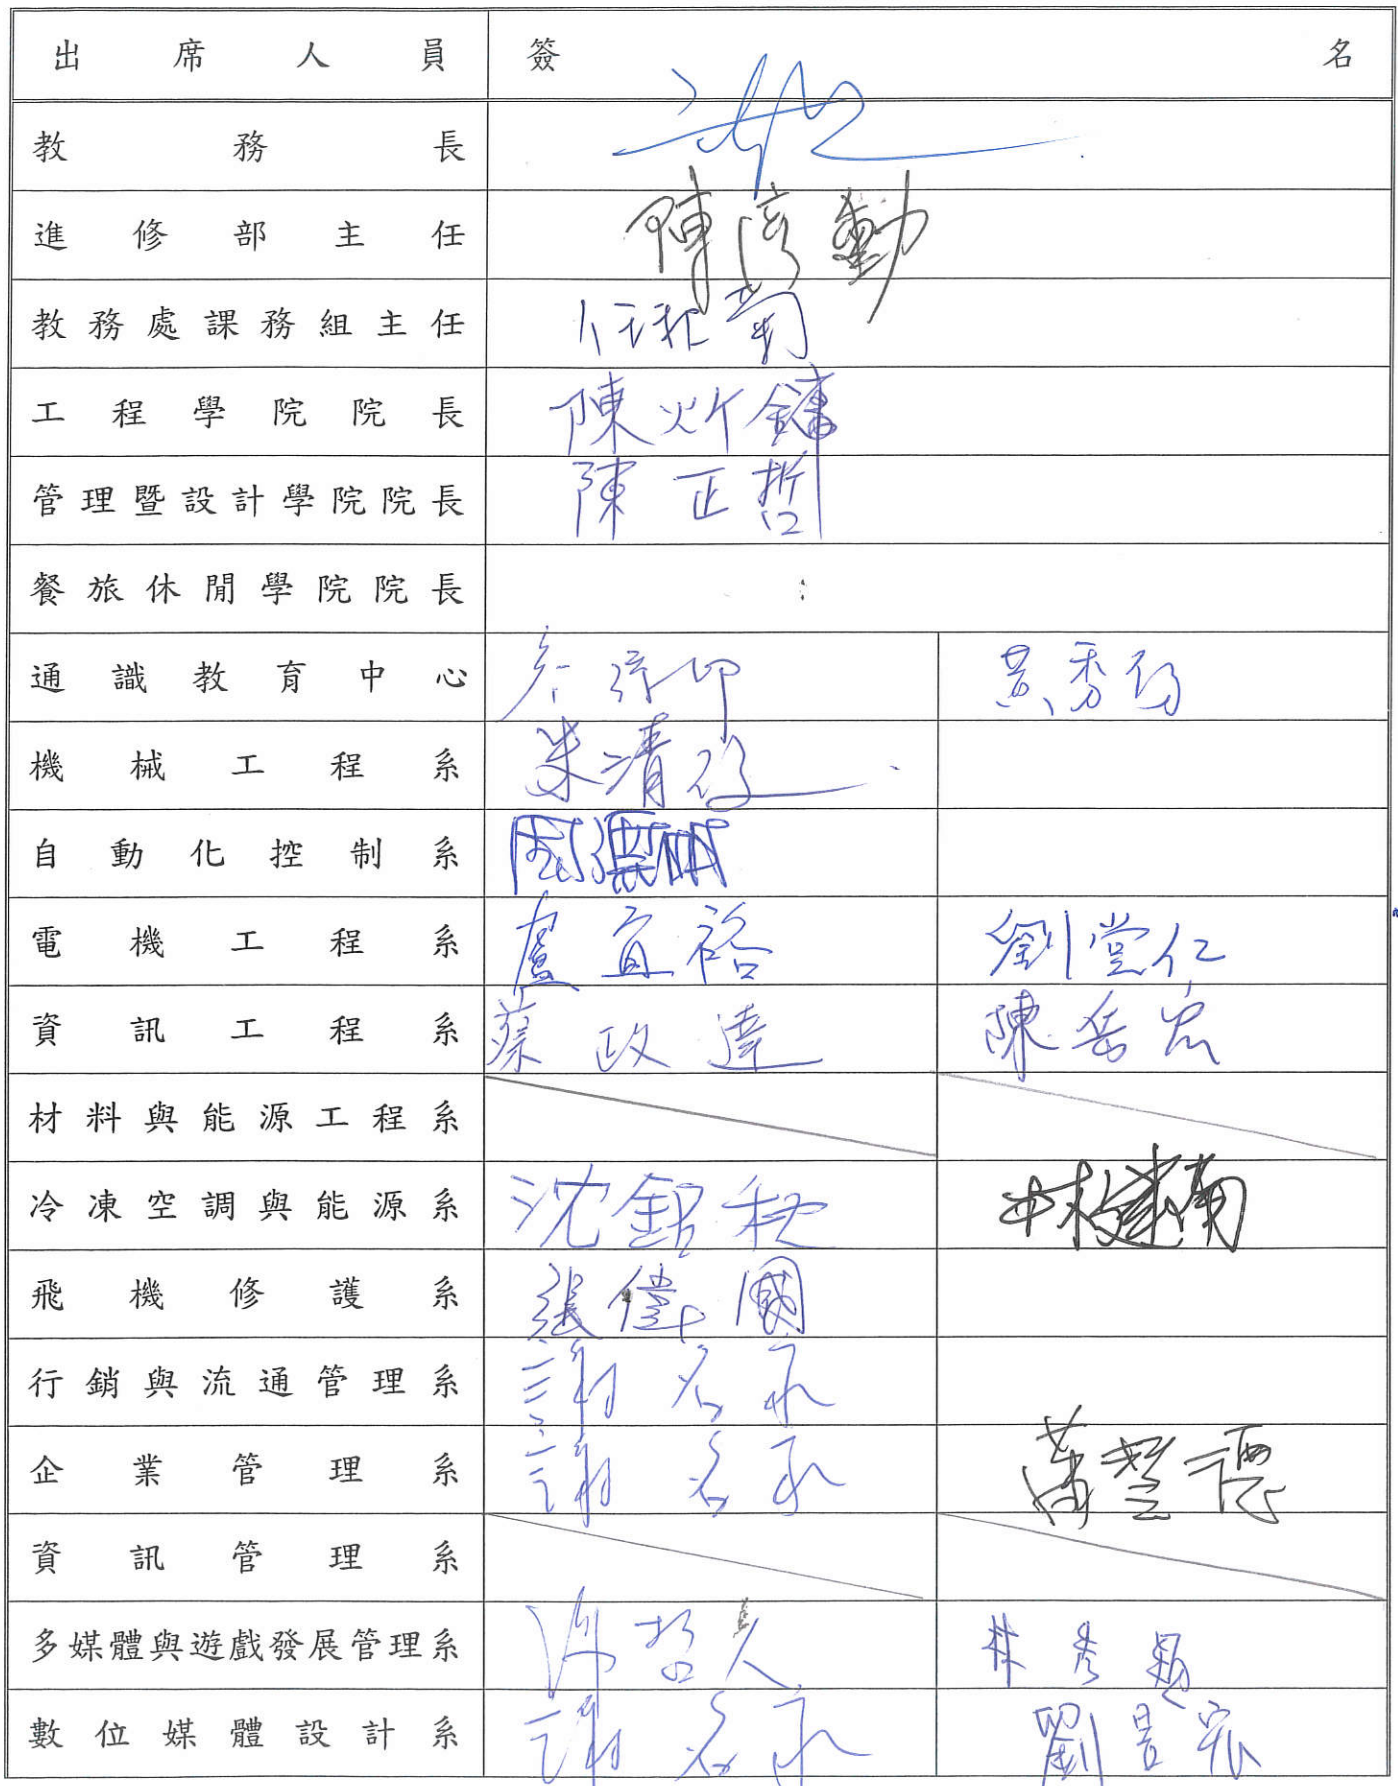 出席人員 簽名
教務長
進修部主任 陳彥勳
教務處課務組主任
工程學院院長 陳炘鏞
管理暨設計學院院長 陳正哲
餐旅休閒學院院長
通識教育中心 黃秀
機械工程系 朱清
自動化控制系
電機工程系 盧宜裕 劉堂仁
資訊工程系 蔡政達 陳岳宏
材料與能源工程系
冷凍空調與能源系 沈銘秋 林建南
飛機修護系 張偉國
行銷與流通管理系 謝名永
企業管理系 謝名永 德
資訊管理系
多媒體與遊戲發展管理系 哲人 林秀
數位媒體設計系 謝名永 劉昱宏